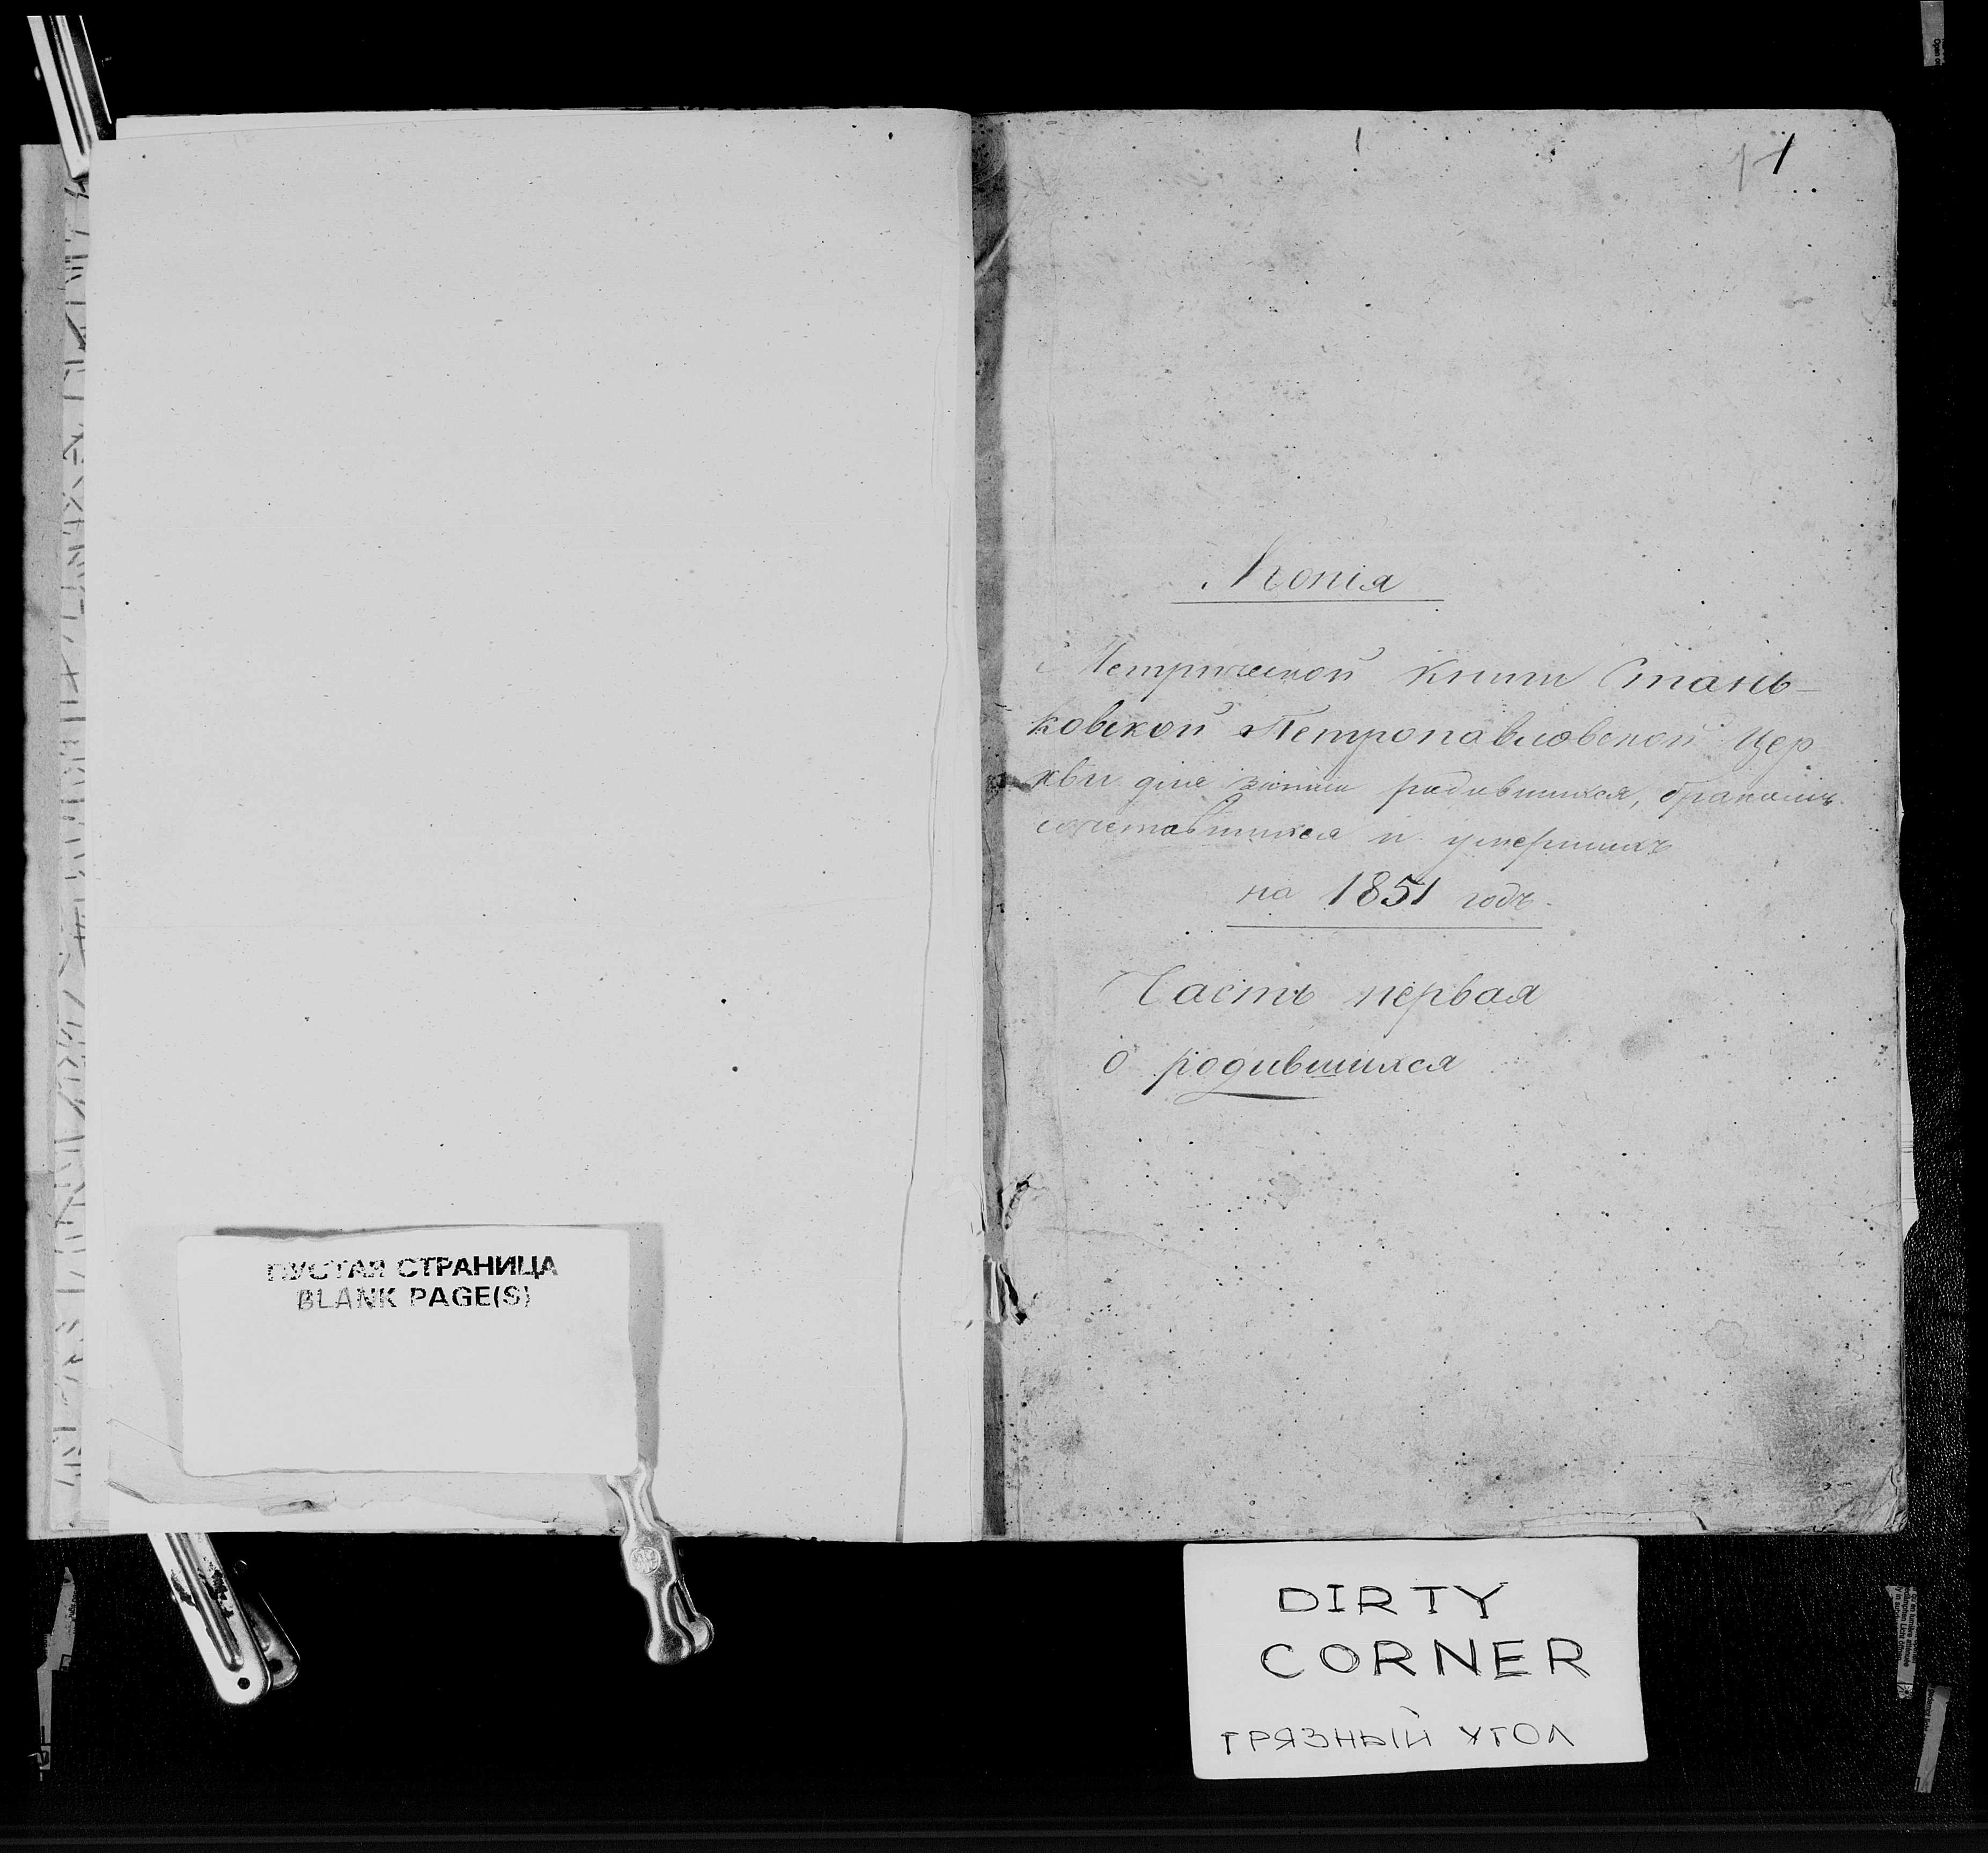 ПУСТАЯ СТРАНИЦА
BLANK PAGE(S)
1
Копія
с Метрической книги Стань-
ковской Петропавловской Цер
кви для записи родившихся, бракомъ
сочетавшихся и умершихъ
на 1851 годъ.
Часть первая
о родившихся
DIRTY
CORNER
ГРЯЗНЫЙ УГОЛ